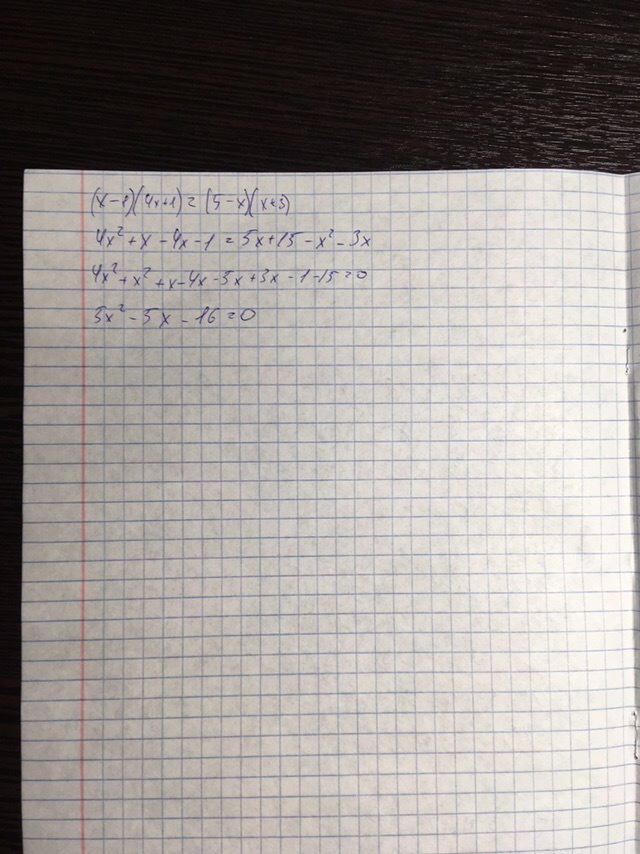 (x-1)(4x+1)=(5-x)(x+3)
4x²+x-4x-1=5x+15-x²-3x
4x²+x²+x-4x-5x+3x-1-15=0
5x²-5x-16=0